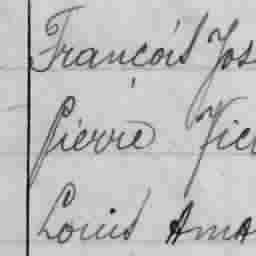 François Jos
Pierre Vic
Louis Ama